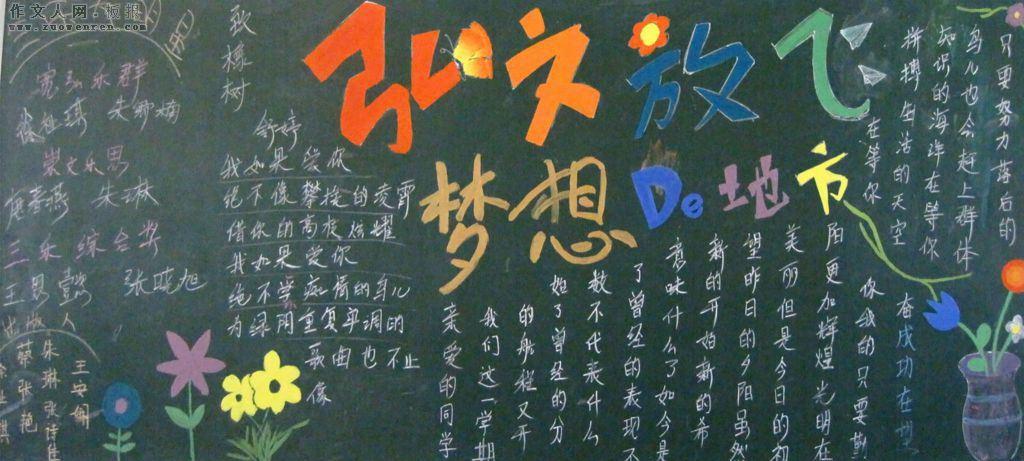 作文人网·板报
www.zuowenren.com
弘文放飞
梦想De地方
致橡树
舒婷
我如果爱你
绝不像攀援的凌霄
借你的高枝炫耀
我如果爱你
绝不学痴情的鸟儿
为绿阴重复单调的
歌曲也不止
像
朱娜娴
崇文乐思
朱琳
三乐综合奖
张晓旭
只要努力落后的
鸟儿也会赶上群体
知识的海洋在等你
拼搏生活的天空
在等你
你我的只要勤
奋成功在
陌更加辉煌光明在
美丽但是今日的初
望昨日的夕阳虽然
新的开始新的希
意味什么了如今是
了曾经的表现不
教不代表什么
始了曾经的分
的航程又开
我们这一学期
亲爱的同学